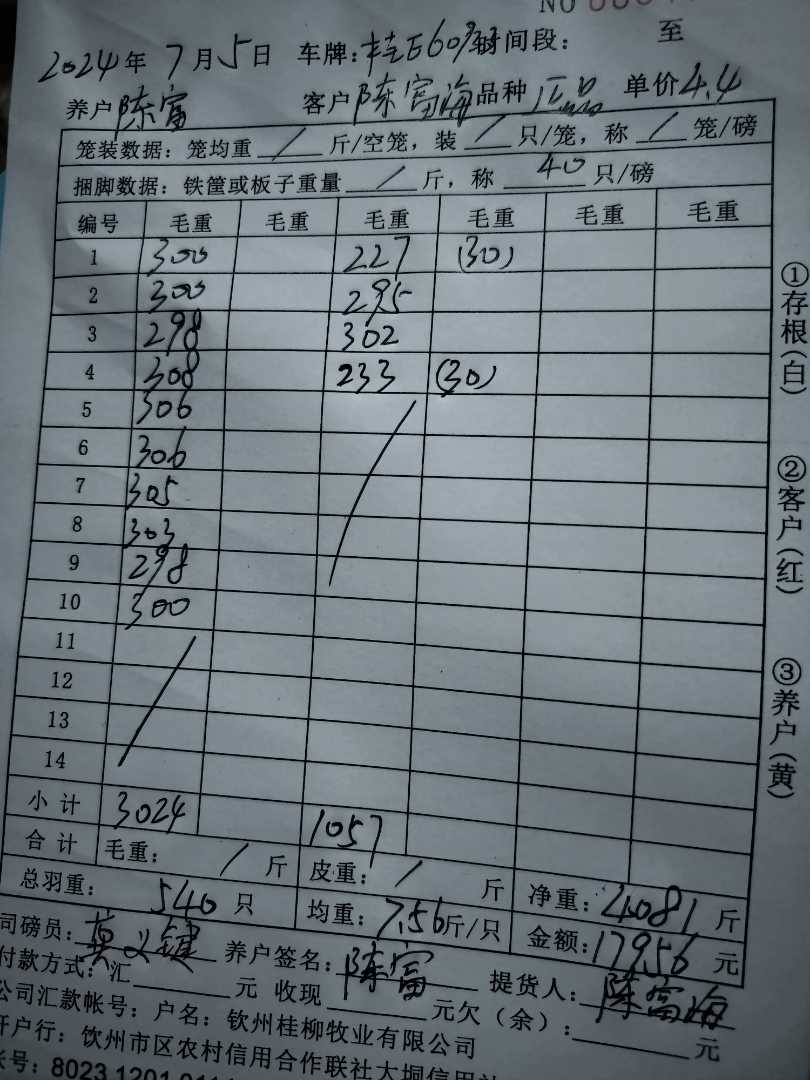 NO
2024年 7月5日 车牌: 时间段: 至
养户 陈富 客户 陈富海 品种 正品 单价 4.4
笼装数据: 笼均重 / 斤/空笼, 装 / 只/笼, 称 / 笼/磅
捆脚数据: 铁筐或板子重量 / 斤, 称 40 只/磅
编号 毛重 毛重 毛重 毛重 毛重 毛重
1 300 227 (30)
2 300 295
3 298 302
4 308 233 (30)
5 306
6 306
7 305
8 303
9 298
10 300
11
12
13
14
小计 3024 1057
合计 毛重: / 斤 皮重: / 斤 净重: 4081 斤
总羽重: 540 只 均重: 7.56 斤/只 金额: 17956 元
司磅员: 莫义键 养户签名: 陈富 提货人: 陈富海
付款方式: 汇 元 收现 元欠(余): 元
公司汇款帐号: 户名: 钦州桂柳牧业有限公司
开户行: 钦州市区农村信用合作联社大垌信用社
帐号: 8023 1201
①存根(白)
②客户(红)
③养户(黄)